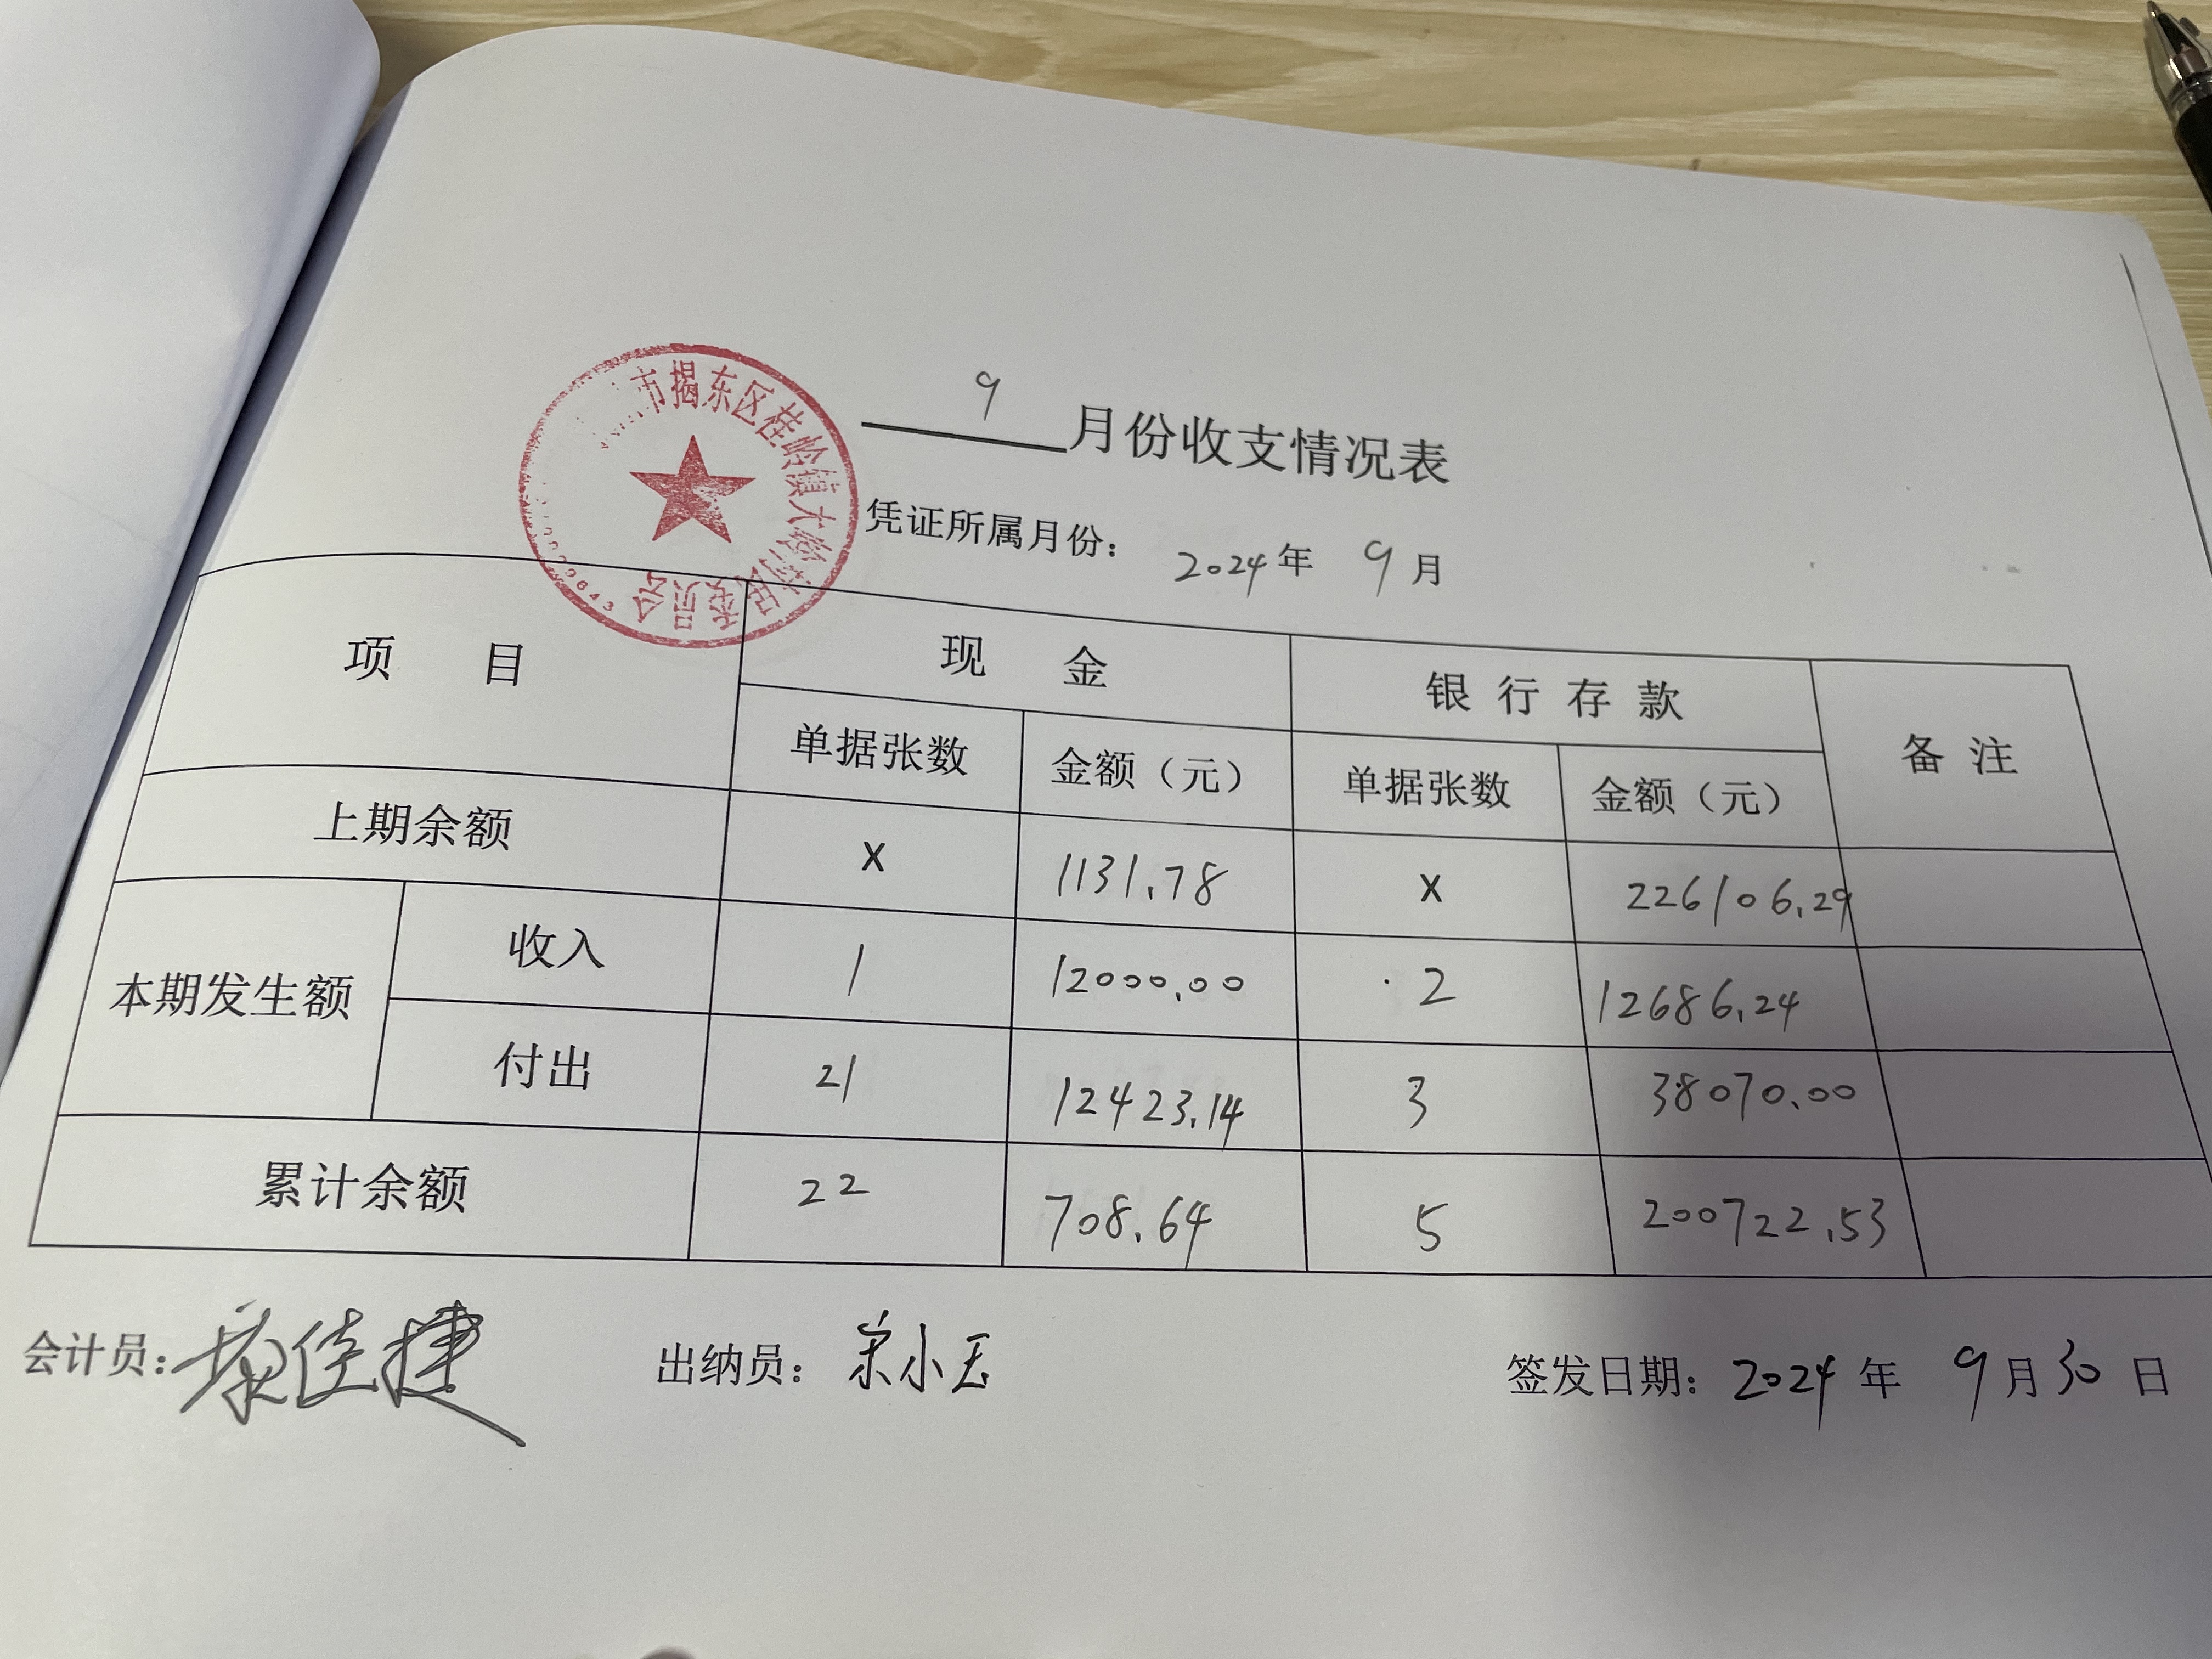 市揭东区桂岭镇大岭村民委员会
9月份收支情况表
凭证所属月份： 2024年 9月
项 目 现 金 银行存款 备注
单据张数 金额（元） 单据张数 金额（元）
上期余额 X 1131.78 X 226106.29
本期发生额 收入 1 12000.00 2 12686.24
付出 21 12423.14 3 38070.00
累计余额 22 708.64 5 200722.53
会计员： 佳捷 出纳员： 小玉 签发日期： 2024年 9月30日